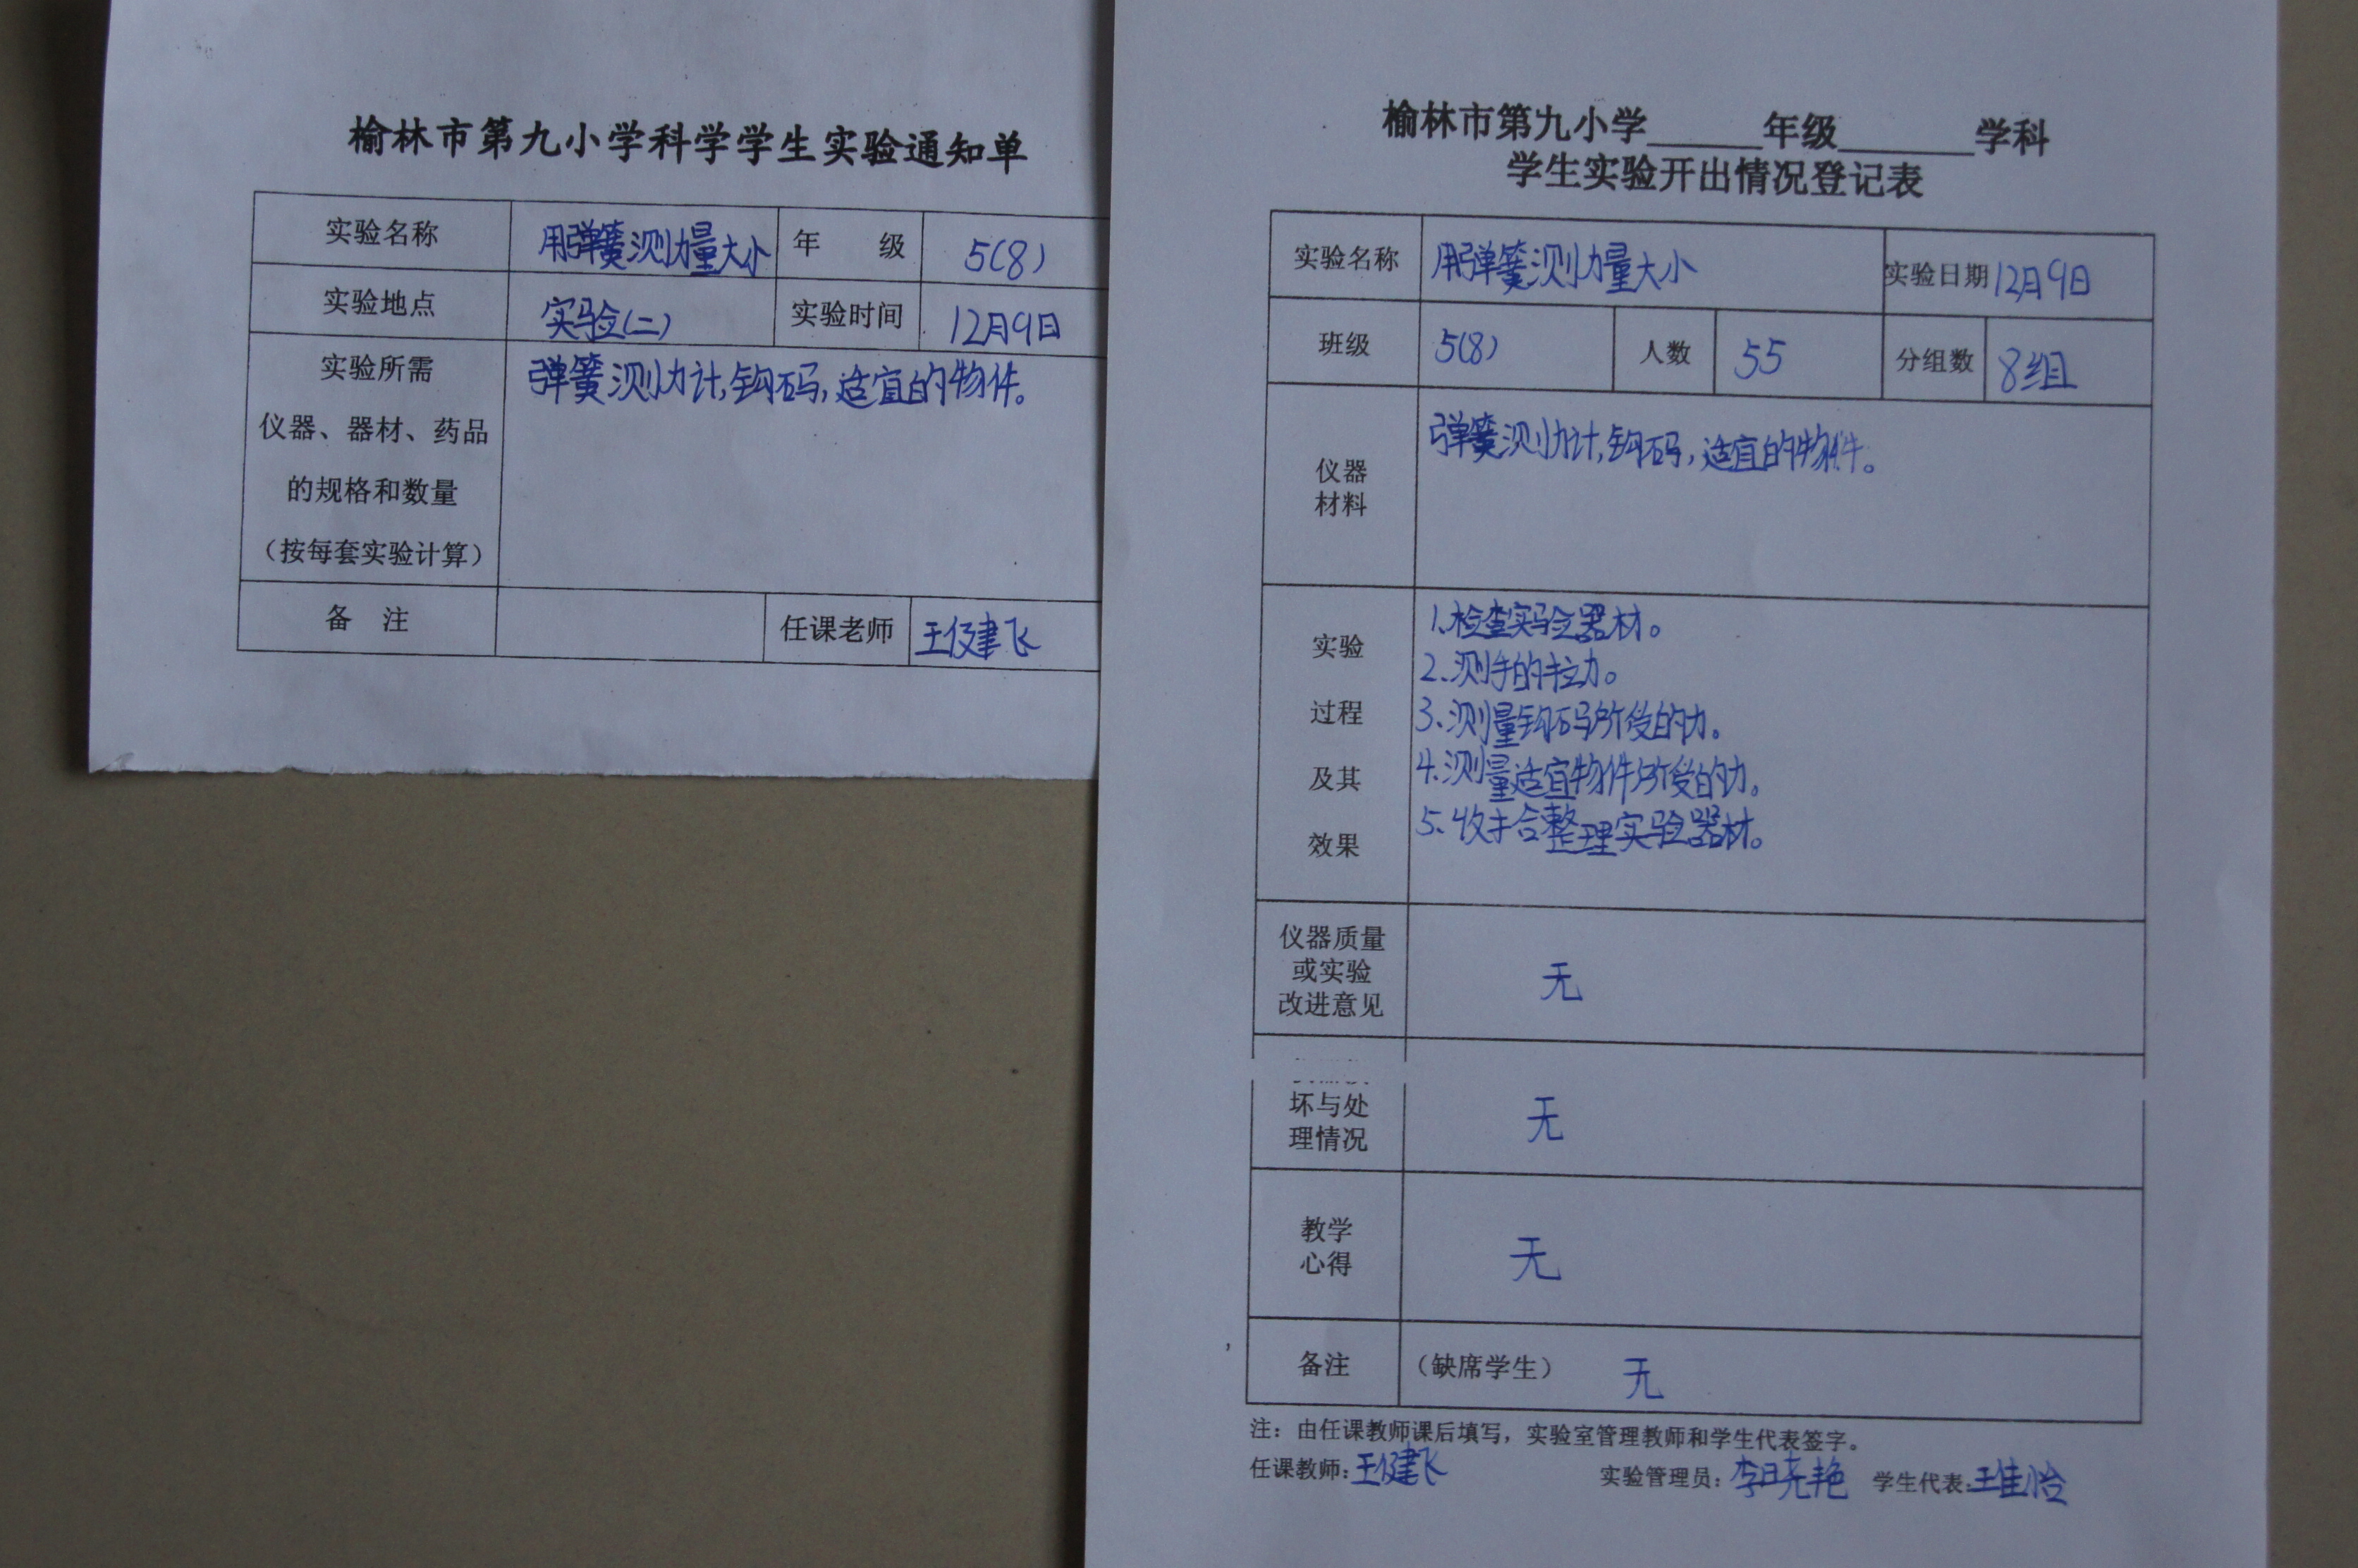 榆林市第九小学科学学生实验通知单
实验名称 用弹簧测力量大小 年 级 5(8)
实验地点 实验(二) 实验时间 12月9日
实验所需
仪器、器材、药品
的规格和数量
（按每套实验计算）
弹簧测力计,钩码,适宜的物件。
备 注 任课老师 王建飞
榆林市第九小学______年级_______学科
学生实验开出情况登记表
实验名称 用弹簧测力量大小 实验日期 12月9日
班级 5(8) 人数 55 分组数 8组
仪器
材料
弹簧测力计,钩码,适宜的物件。
实验
过程
及其
效果
1、检查实验器材。
2、测手的拉力。
3、测量钩码所受的力。
4、测量适宜物件所受的力。
5、收拾整理实验器材。
仪器质量
或实验
改进意见
无
坏与处
理情况
无
教学
心得
无
备注 （缺席学生） 无
注：由任课教师课后填写，实验室管理教师和学生代表签字。
任课教师：王建飞 实验管理员：李晓艳 学生代表：王佳怡